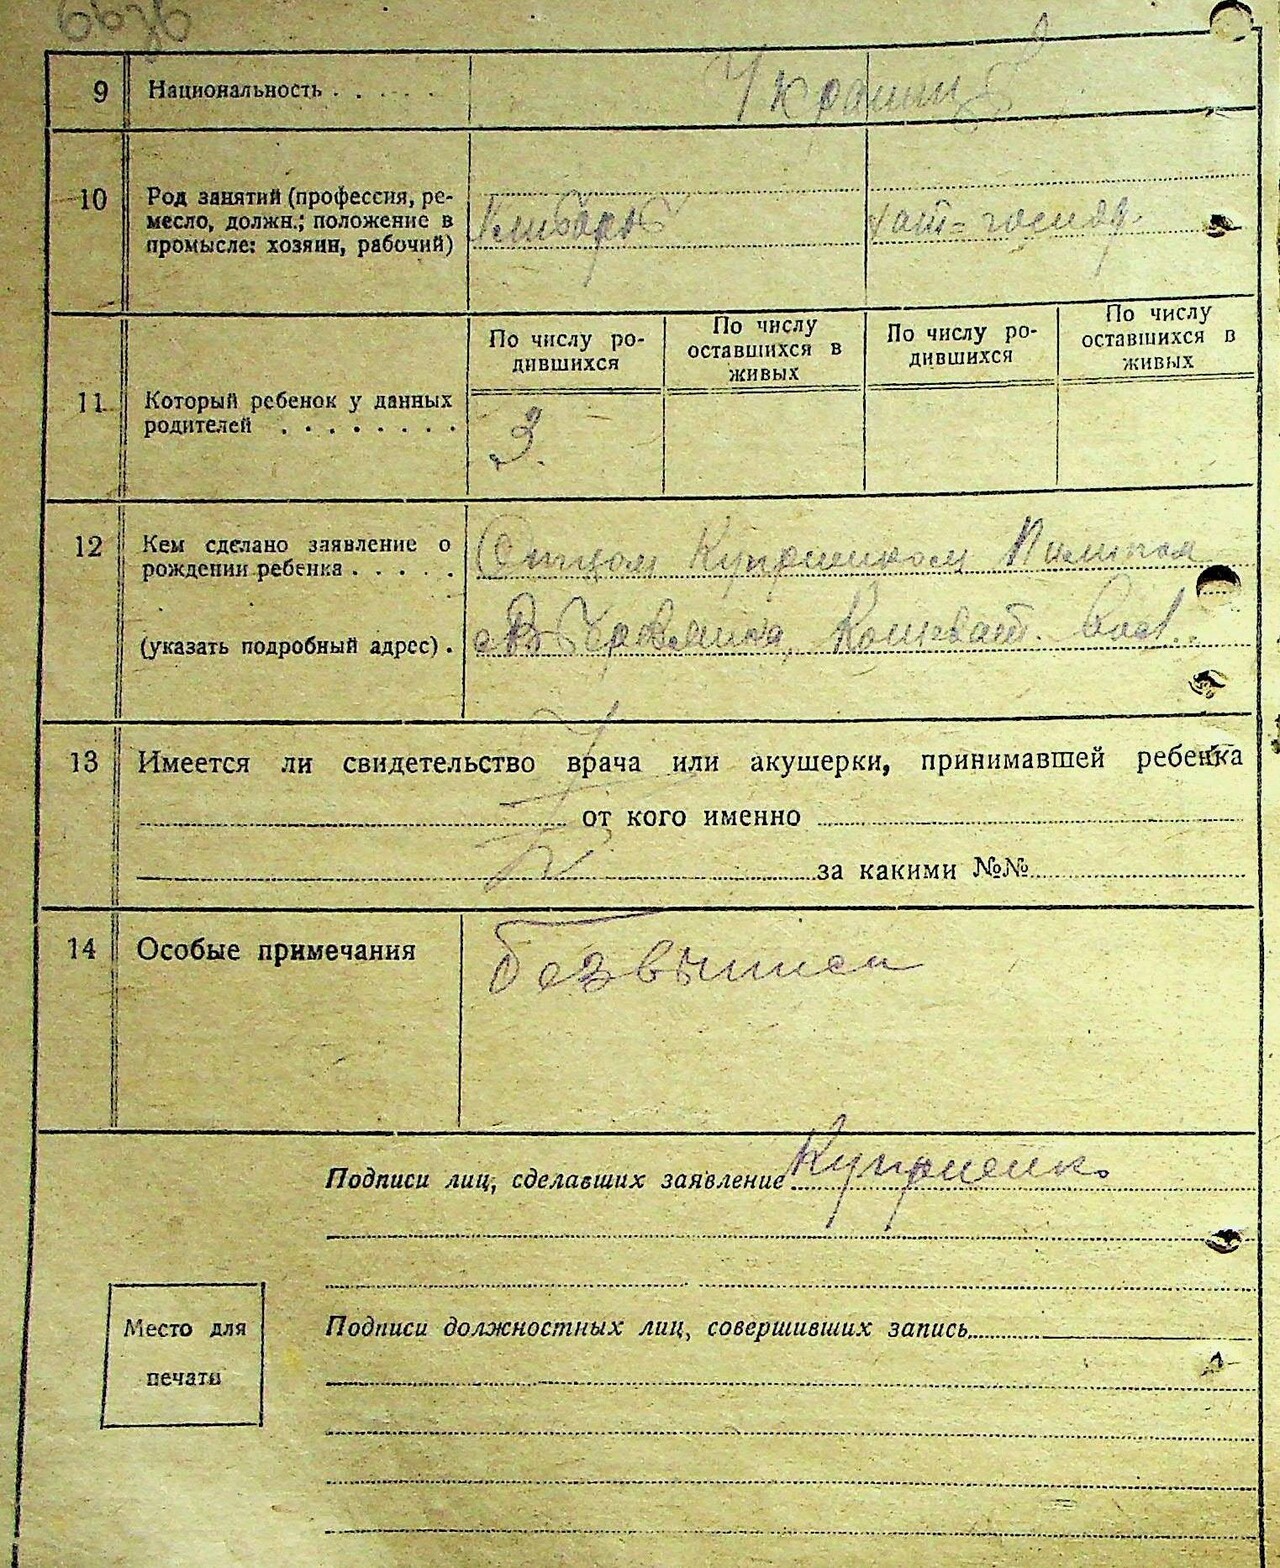 9 Национальность . . . . . Украинц
10 Род занятий (профессия, ре-
месло, должн.; положение в
промысле: хозяин, рабочий)
Хлібороб хат-господ.
11 Который ребенок у данных
родителей . . . . . . . .
По числу ро-
дившихся
По числу
оставшихся в
живых
По числу ро-
дившихся
По числу
оставшихся в
живых
3.
12 Кем сделано заявление о
рождении ребенка . . . . .
(указать подробный адрес) .
Отцом Куприенком
13 Имеется ли свидетельство врача или акушерки, принимавшей ребенка
от кого именно
за какими №№
14 Особые примечания
без выписи
Подписи лиц, сделавших заявление Куприенко
Место для
печати
Подписи должностных лиц, совершивших запись